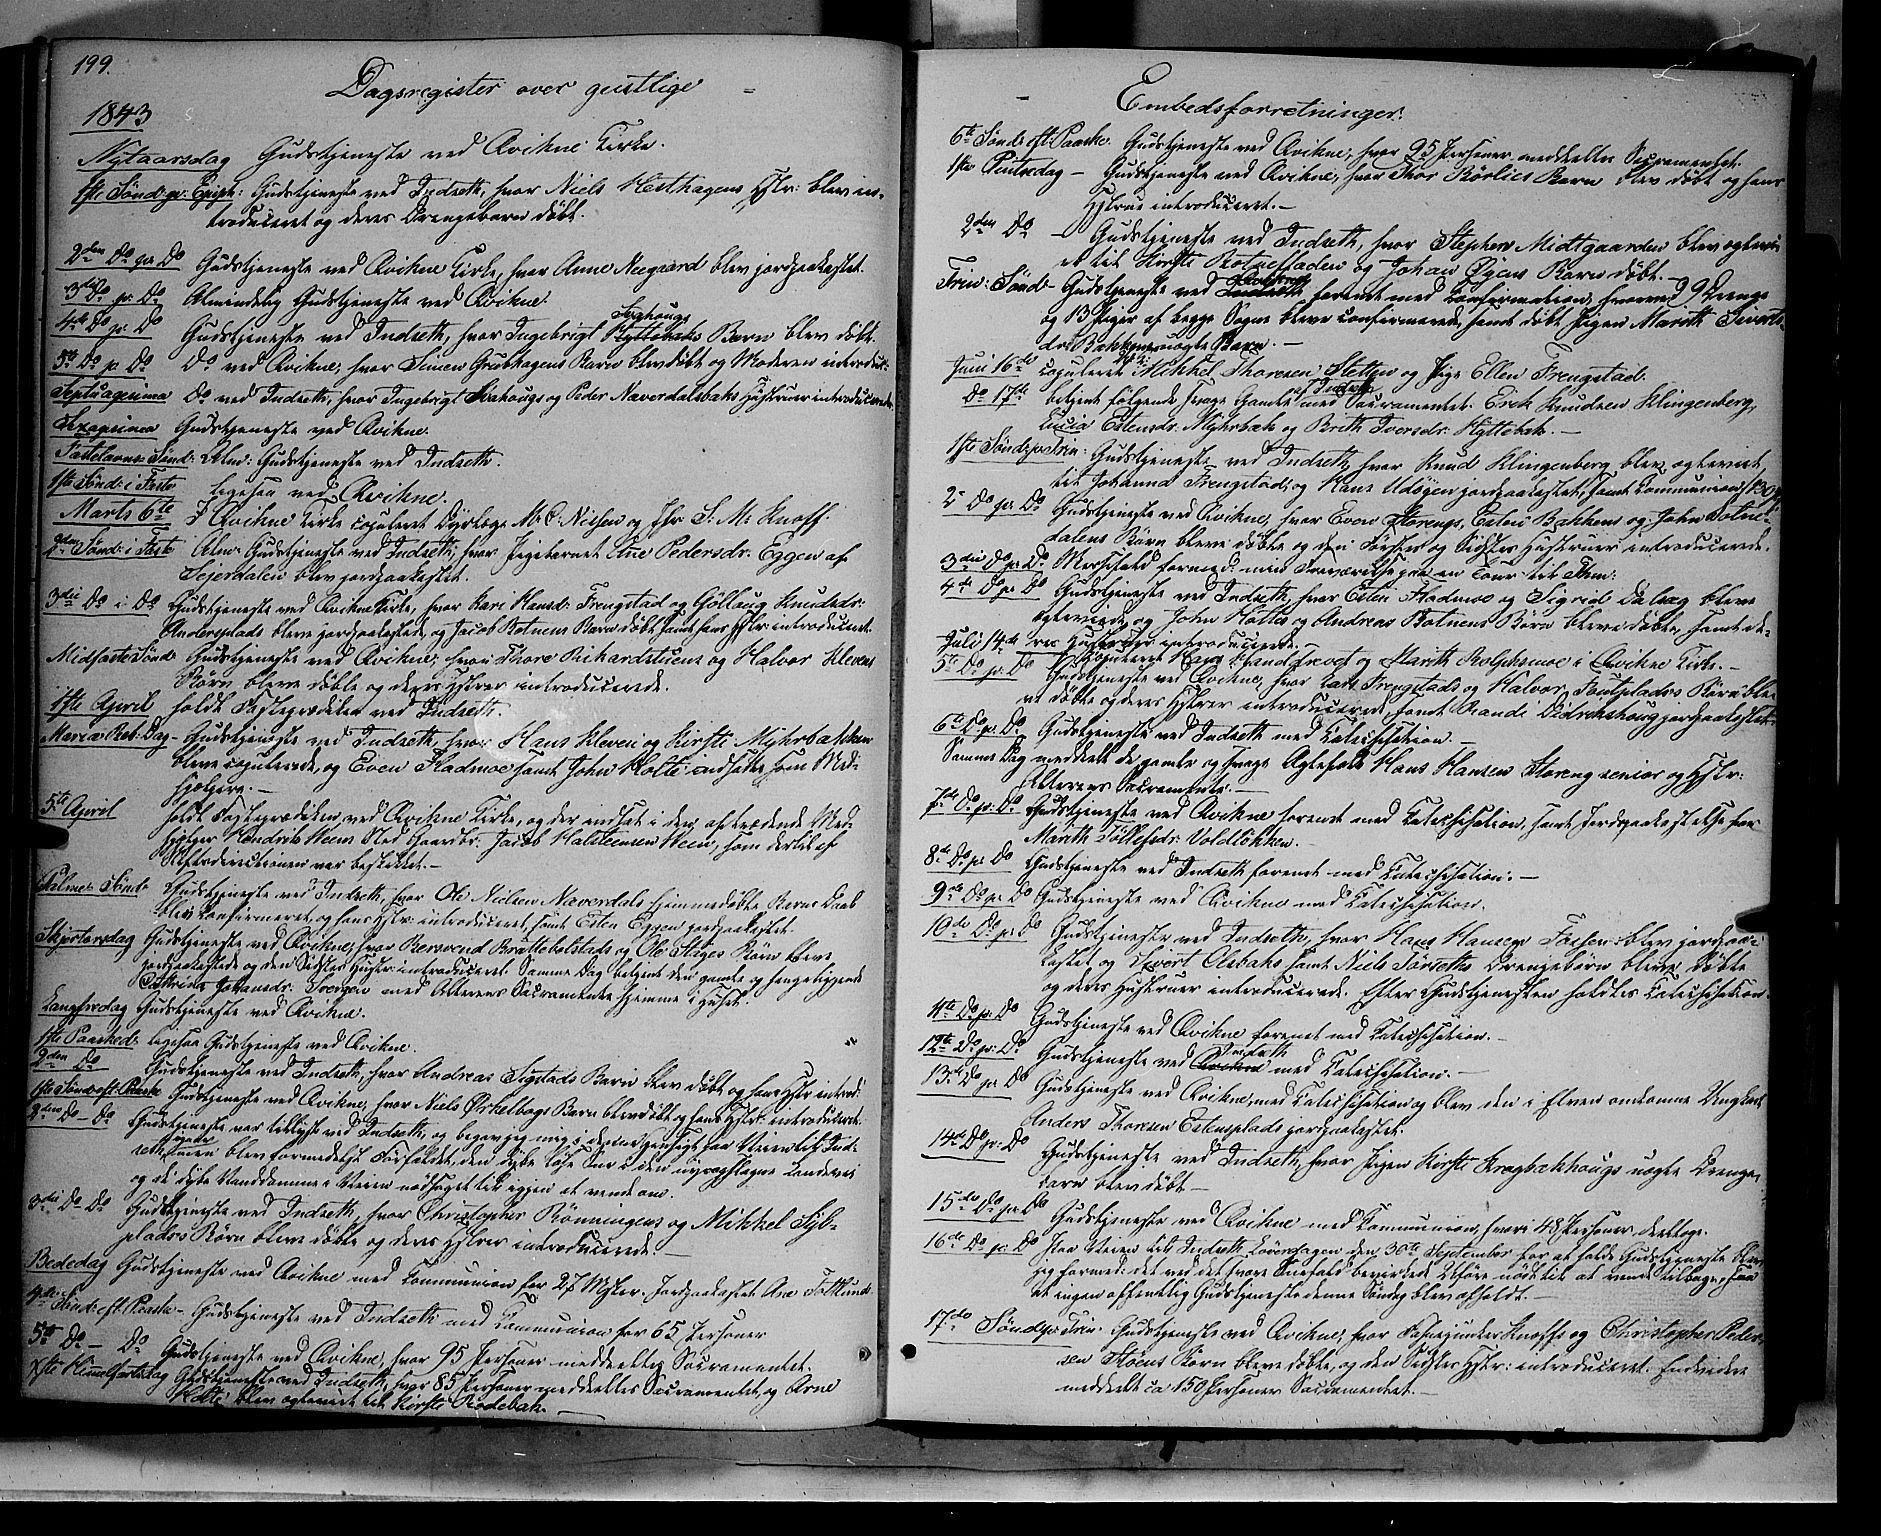 199.
Dagsregister over geistlige
1843
Nytaarsdag Gudstjeneste ved Qvikne Kirke.
1ste Sønd: p: Epiph: Gudstjeneste ved Indseth, hvor Niels Hesthagens Hstr: blev in-
troduceret og deres Drengebarn døbt.
2den Do p: Do Gudstjeneste ved Qvikne Kirke, hvor Anne Neegaard blev jordpaakastet.
3die Do p: Do Almindelig Gudstjeneste ved Qvikne.
4de Do p: Do Gudstjeneste ved Indseth, hvor Ingebrigt Svahougs Hyttebaks Barn blev døbt.
5te Do p Do Do ved Qvikne, hvor Simen Grubhagens Barn blev døbt og Moderen introdu-
Septuagesima Do ved Indseth, hvor Ingebrigt Svahougs og Peder Naverdalsbaks Hustruer introduceredes
Sexagesima Gudstjeneste ved Qvikne.
Fastelavns Sønd: Alm: Gudstjeneste ved Indseth.
1ste Sønd: i Faste ligesaa ved Qvikne.
Marts 6te I Qvikne Kirke copuleret Dyrlæge M. C. Nilsen og Jfr S. M. Knoff.
2den Sønd: i Faste Alm: Gudstjeneste ved Indseth, hvor Pigebarnet Ane Pedersdr. Eggen af
Sejerdalen blev jordpaakastet.
3die Do i Do Gudstjeneste ved Qvikne Kirke, hvor Kari Hansd: Frengstad og Göllaug Knudsdr:
Andersplads bleve jordpaakastede, og Jacob Botnens Barn døbt samt hans Hstr: introduceret.
Midfaste Sønd: Gudstjeneste ved Qvikne, hvor Thore Rikardstuens og Halvor Klevens
Børn bleve døbte og deres Hstrer introducerede.
1ste April holdt Fasteprædiken ved Indseth.
Mariæ Beb: Dag - Gudstjeneste ved Indseth, hvor Hans Kleven og Kirsti Myhrbakken
bleve copulerede, og Even Fladmoe samt John Holte indsatte som Med-
hjelpere. -
5te April holdt Fasteprædiken ved Qvikne Kirke, og der indsat i den afdrædende Med-
hjelper Hendrik Heens Sted Gaardbr: Jacob Halsteensen Heen, som dertil af
Stiftsdirectionen var beskikket. -
Palme Sønd: Gudstjeneste ved Indseth, hvor Ole Nielsen Naverdals hjemmedøbte Barns Daab
blev confirmeret, og hans Hstr: introduceret, samt Esten Eggen jordpaakastet.
Skjertorsdag Gudstjeneste ved Qvikne, hvor Bersvend Brattebakstads og Ole Stages Børn bleve
jordpaakastede og den Sidstes Hustr: introduceret. Samme Dag betjent den gamle og sengeliggende
Cathrine Johansdr: med Alterens Sacramente hjemme i Huset.
Langfredag Gudstjeneste ved Qvikne.
1ste Paasked: ligesaa Gudstjeneste ved Qvikne.
2den Do Gudstjeneste ved Indseth, hvor Andreas Sigstads Barn blev døbt og hans Hstr introd:
1ste Sønd: eft: Paaske Gudstjeneste ved Qvikne, hvor Niels Ørkelbogs Barn blev døbt og hans Hstr: introduceret.
2den Do - Do Gudstjeneste var tillyst ved Indseth, og begav jeg mig i denne Hensigt paa Veien til Ind-
seth, men blev formedelst Snefaldet, den dybe løse Sne i den nyopslagne Landevei
og de dybe Vanddamme i Veien nødsaget til igjen at vende om.
3die Do Do Gudstjeneste ved Indseth, hvor Christopher Rönningens og Mikkel Sÿb-
plads Börn bleve døbte og deres Hstrer introducerede. -
Bededag Gudstjeneste ved Qvikne med Communion for 27 Msker. Jordpaakastet Ane Folklund.
4de Sønd: eft: Paaske - Gudstjeneste ved Indseth med Communion for 65 Personer
5te Do - Do Gudstjeneste ved Qvikne, hvor 95 Personer meddeeltes Sacramentet.
Xsti Himelfartsdag Gudstjeneste ved Indseth, hvor 85 Personer meddeeltes Sacramentet, og Arne
Holte blev ægteviet til Kirsti Rødebak. -
Embedsforretninger.
6te Sønd: eft: Paaske Gudstjeneste ved Qvikne, hvor 95 Personer meddeeltes Sacramentet.
1ste Pintsedag - Gudstjeneste ved Qvikne, hvor Thor Börlies Barn blev døbt og hans
Hstrue introduceret. -
2den Do - Gudstjeneste ved Indseth, hvor Stephen Midtgaarden blev ægtevi-
et til Kirsti Botnestaden og Johan Øyens Barn døbt. -
Trin: Sønd: Gudstjeneste ved Indseth forenet med Confirmation, hvorved 9 Drenge
og 13 Piger af begge Sogne bleve confirmerede, samt døbt Pigen Marith Sivers-
dr. Bakkens uægte Barn. -
Juni 16de copuleret Mikkel Thoresen Stetten og Pige Ellen Frengstad.
Do 17de betjent følgende svage Gamle ved Indseth med Sacramentet. Erik Knudsen Klingenberg,
Lucia Estensdr. Myhrbak og Brith Iversdr. Hyttebak. -
1ste Sönd: p: Trin: Gudstjeneste ved Indseth, hvor Knud Klingenberg blev ægteviet
til Johanna Frengstad, og Hans Udöyen jordpaakastet, samt Communion (130
2den Do p: Do Gudstjeneste ved Qvikne, hvor Even Storengs, Esten Bakkens og John Botne-
dalens Børn bleve døbte og den Førstes og Sidstes Hustruer introducerede.
3die Do p: Do Messefald formed: min Fraværelse paa en Tour til Thm:
4de Do p: Do Gudstjeneste ved Indseth, hvor Esten Fladmoe og Sigrid Dalsæg bleve
ægteviede, og John Holtes og Andreas Botnens Børn bleve døbte, samt de-
res Hustruer introducerede.
Juli 14de Copuleret Hans Strand Trøet og Marith Bolpkmoe i Qvikne Kirke. -
5te Do p: Do Gudstjeneste ved Qvikne, hvor Lars Frengstads og Halvor Foutplads Børn ble-
ve døbte og deres Hstrer introducerede, samt Randi Didrikshoug jordpaakastet.
6te Do p: Do Gudstjeneste ved Indseth med Catechisation. -
Samme Dag meddeelt de gamle og svage Ægtefolk Hans Hansen Storeng senior og Hstr:
Alterens Sacramente. -
7de Do p: Do Gudstjeneste ved Qvikne forenet med Catechisation, samt Jordpaakastelse for
Marith Tollefsdr: Voldlökken. -
8de Do p: Do Gudstjeneste ved Indseth forenet med Catechisation. -
9de Do p: Do Gudstjeneste ved Qvikne med Catechisation.
10de Do p: Do Gudstjeneste ved Indseth, hvor Hans Hansen Fossen blev jordpaa-
kastet og Sivert Olsbaks samt Niels Törseths Drengebørn bleve døbte
og deres Hustruer introducerede. Efter Gudstjenesten holdtes Catechisation.
11te Do p: Do Gudstjeneste ved Qvikne forenet med Catechisation. -
12te Do p: Do Gudstjeneste ved Qvikne Indseth med Catechisation. -
13de Do p: Do Gudstjeneste ved Qvikne, med Catechisation og blev den i Elven omkomne Ungkarl
Anders Thoresen Estensplads jordpaakastet.
14de Do p: Do Gudstjeneste ved Indseth, hvor Pigen Kirsti Kragbakhougs uægte Drenge-
barn blev døbt -
15de Do p: Do Gudstjeneste ved Qvikne med Communion, hvori 48 Personer deeltoge.
16de Do p: Do Paa Veien til Indseth Løverdagen den 30te September for at holde Gudstjeneste blev
jeg formed: det ved det svære Snefald bevirkede Uføre nødt til at vende tilbage, saa
at ingen offentlig Gudstjeneste denne Søndag blev afholdt. -
17de Sønd: p: Trin: Gudstjeneste ved Qvikne, hvor Pasujunker Knoffs og Christopher Peder-
sen Stöens Börn bleve døbte, og den Sidstes Hstr: introduceret. Endvidere
meddeelt ca 150 Personer Sacramentet. -